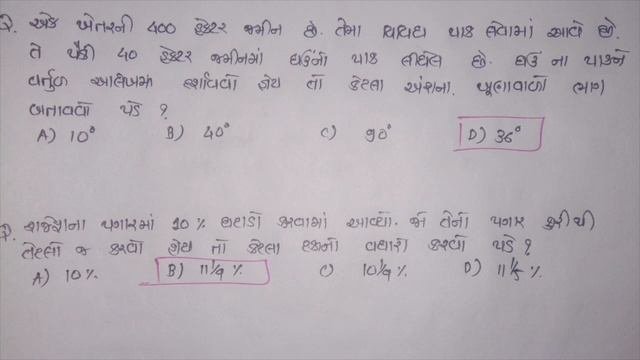 Q. એક ખેતરની 400 હેક્ટર જમીન છે. તેમાં વિવિધ પાક લેવામાં આવે છે.
તે પૈકી 40 હેક્ટર જમીનમાં ઘઉંનો પાક લીધેલ છે. ઘઉં ના પાકને
વર્તુળ આલેખમાં દર્શાવવો હોય તો કેટલા અંશના ખૂણાવાળો ભાગ
બનાવવો પડે ?
A) 10° B) 40° C) 90° D) 36°
Q. રાજેશના પગારમાં 10 % ઘટાડો કરવામાં આવ્યો. જો તેનો પગાર ફરીથી
તેટલો જ કરવો હોય તો કેટલા ટકાનો વધારો કરવો પડે ?
A) 10 % B) 11 1/9 % C) 10 1/9 % D) 11 1/5 %